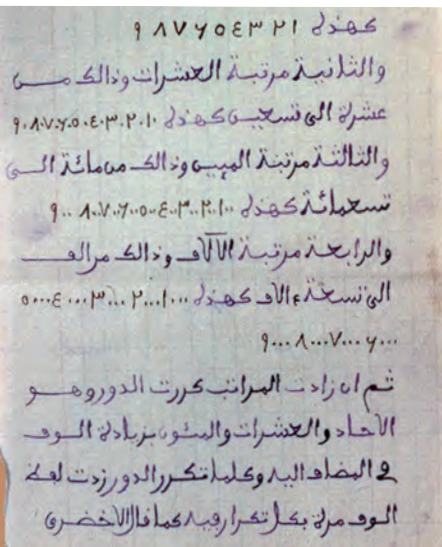 كهذه ١ ٢ ٣ ٤ ٥ ٦ ٧ ٨ ٩
والثانية مرتبة العشرات وذالك مـن
عشرة الى تسعين كهذه ١٠.٢٠.٣٠.٤٠.٥٠.٦٠.٧٠.٨٠.٩٠
والثالثة مرتبة الميين وذالك من مائة الـى
تسعمائة كهذه ١٠٠.٢٠٠.٣٠٠.٤٠٠.٥٠٠.٦٠٠.٧٠٠.٨٠٠.٩٠٠
والرابعة مرتبة الآلاف وذالك من الف
الى تسعة ءالاف كهذه ١٠٠٠ ٢٠٠٠ ٣٠٠٠ ٤٠٠٠ ٥٠٠٠
٦٠٠٠ ٧٠٠٠ ٨٠٠٠ ٩٠٠٠
ثم ان زادت المراتب كررت الدور وهـو
الآحاد والعشرات والمئون بزيادة الوف
في المضاف اليه وكلما تكرر الدور زدت لفظ
الوف مرة بكل تكرار فيه كما قال الاخضري